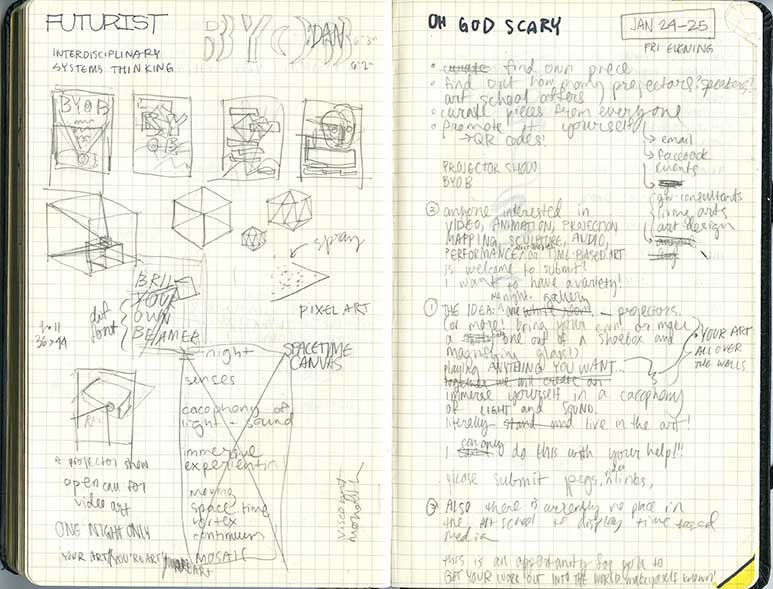 FUTURIST
INTERDISCIPLINARY
SYSTEMS THINKING
BYO
DAN
6'3"
6'2"
BYOB
BY
OB
spray
PIXEL ART
BRING
YOUR
OWN
BEAMER
font
36 x 44
night
SPACETIME
CANVAS
senses
cacophony of
light + sound
immersive
moving
space time
vortex
continuum
MOSAIC
a projector show
open call for
video art
ONE NIGHT ONLY
YOUR ART/YOU'RE ART/
OH GOD SCARY
JAN 24-25
FRI EVENING
• curate find own piece
• find out how many projectors? speakers?
art school offers
• curate pieces from everyone
• promote it yourself
→ QR codes!
↳ email
↳ facebook
events
PROJECTOR SHOW
BYOB
consultants
living arts
art + design
② anyone interested in
VIDEO, ANIMATION, PROJECTION
MAPPING, SCULPTURE, AUDIO,
PERFORMANCE, or TIME-BASED ART
is welcome to submit!
I want to have a variety!
① THE IDEA: one night, gallery projectors.
(or more! bring your own! or make
a one out of a shoebox and
magnifying glass!)
playing ANYTHING YOU WANT...
YOUR ART
ALL OVER
THE WALLS
together we will create an
immerse yourself in a cacophony
of LIGHT and SOUND.
literally stand and live in the art!
I can only do this with your help!!!
please submit jpegs, video links,
③ Also there is currently no place in
the art school to display time based
media
this is an opportunity for you to
GET YOUR WORK OUT INTO THE WORLD, make yourself known!